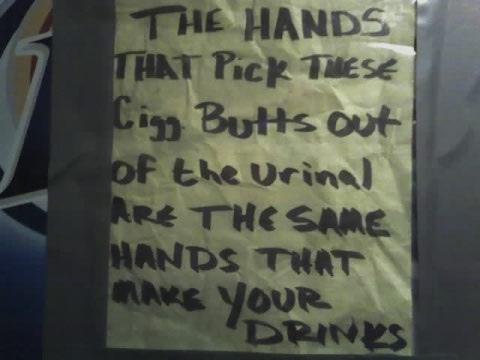 THE HANDS
THAT Pick THESE
Cigg Butts out
OF the Urinal
ARE THE SAME
HANDS THAT
MAKE YOUR
DRINKS